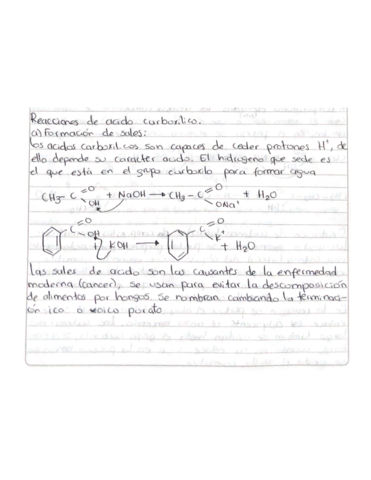 Reacciones de acido carboxilico.
a) Formación de sales:
los acidos carboxilicos son capaces de ceder protones H⁺, de
ello depende su caracter acido. El hidrogeno que sede es
el que está en el grupo carboxilo para formar agua
CH₃- C =O OH + NaOH → CH₃ - C =O ONa⁺ + H₂O
C =O OH KOH → C =O K⁺ + H₂O
Las sales de acido son las causantes de la enfermedad
moderna (cancer), se usan para evitar la descomposición
de alimentos por hongos. Se nombran cambiando la terminaci-
ón ico o oico por ato